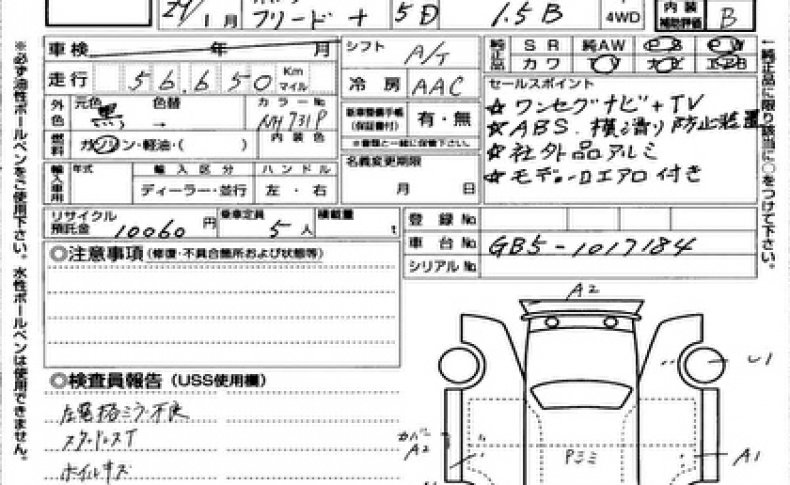 29/1月
フリード+
5D
1.5B
4WD
内装補助評価
B
車検 年 月
シフト
A/T
純正品
SR 純AW PS PW
カワ TV ナビ エアB
走行 56,650 Km マイル
冷房 AAC
セールスポイント
☆ワンセグナビ+TV
☆ABS.横滑り防止装置
☆社外品アルミ
☆モデューロエアロ付き
外色 元色 黒 → 色替
カラーNo. NH731P
内装色
新車整備手帳(保証書付) 有・無
※書類と一緒に保管下さい。
燃料 ガソリン・軽油・( )
名義変更期限
月 日
輸入車用 年式 輸入区分 ハンドル
ディーラー・並行 左・右
リサイクル預託金 10060円
乗車定員 5人
積載量 t
登録No.
車台No. GB5-1017184
シリアルNo.
◎注意事項(修復・不具合箇所および状態等)
◎検査員報告(USS使用欄)
左電格ミラー不良
スタッドレスT
ホイルキズ
A2
U1
カバー
A2
Pミミ
A1
※必ず油性ボールペンをご使用下さい。水性ボールペンは使用できません。
←純正品に限り該当に○をつけて下さい。